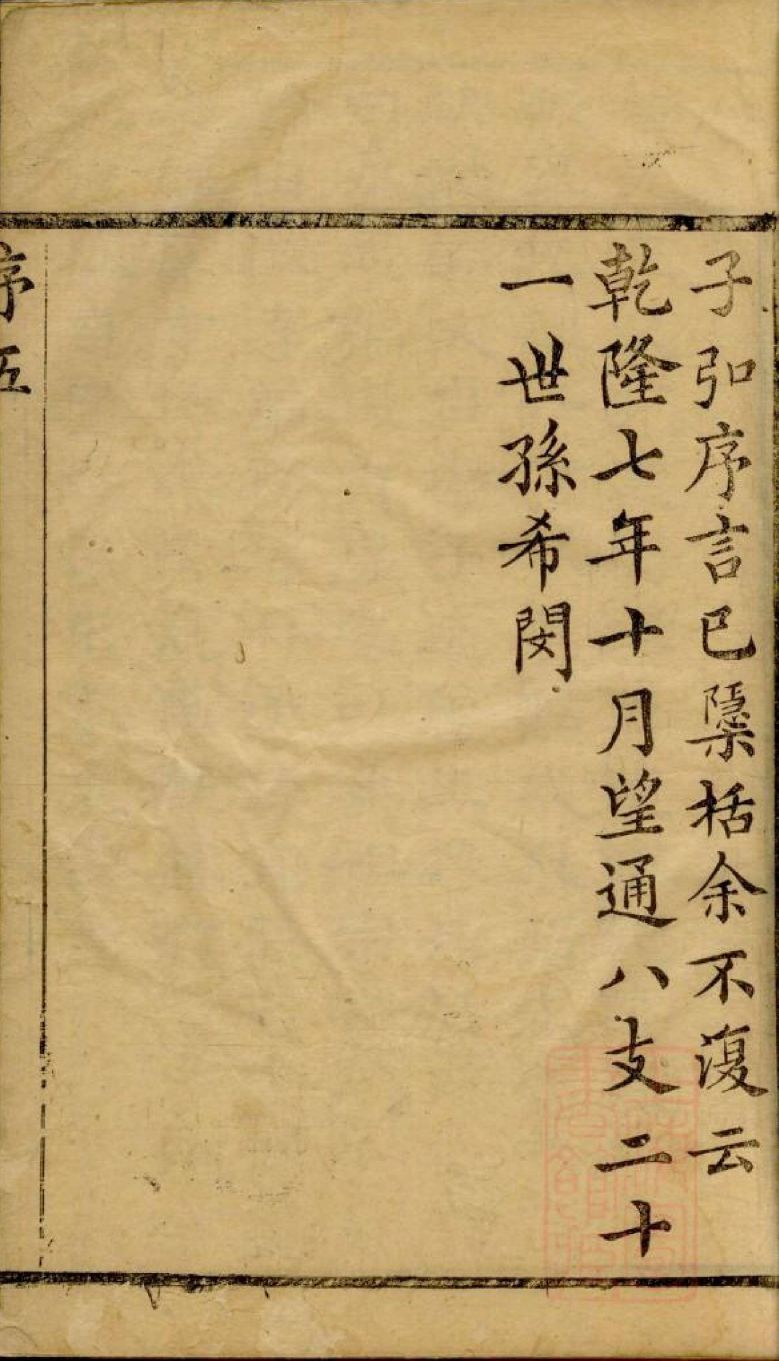 子弘序言已檃括余不復云
乾隆七年十月望通八支二十
一世孫希閔
序五